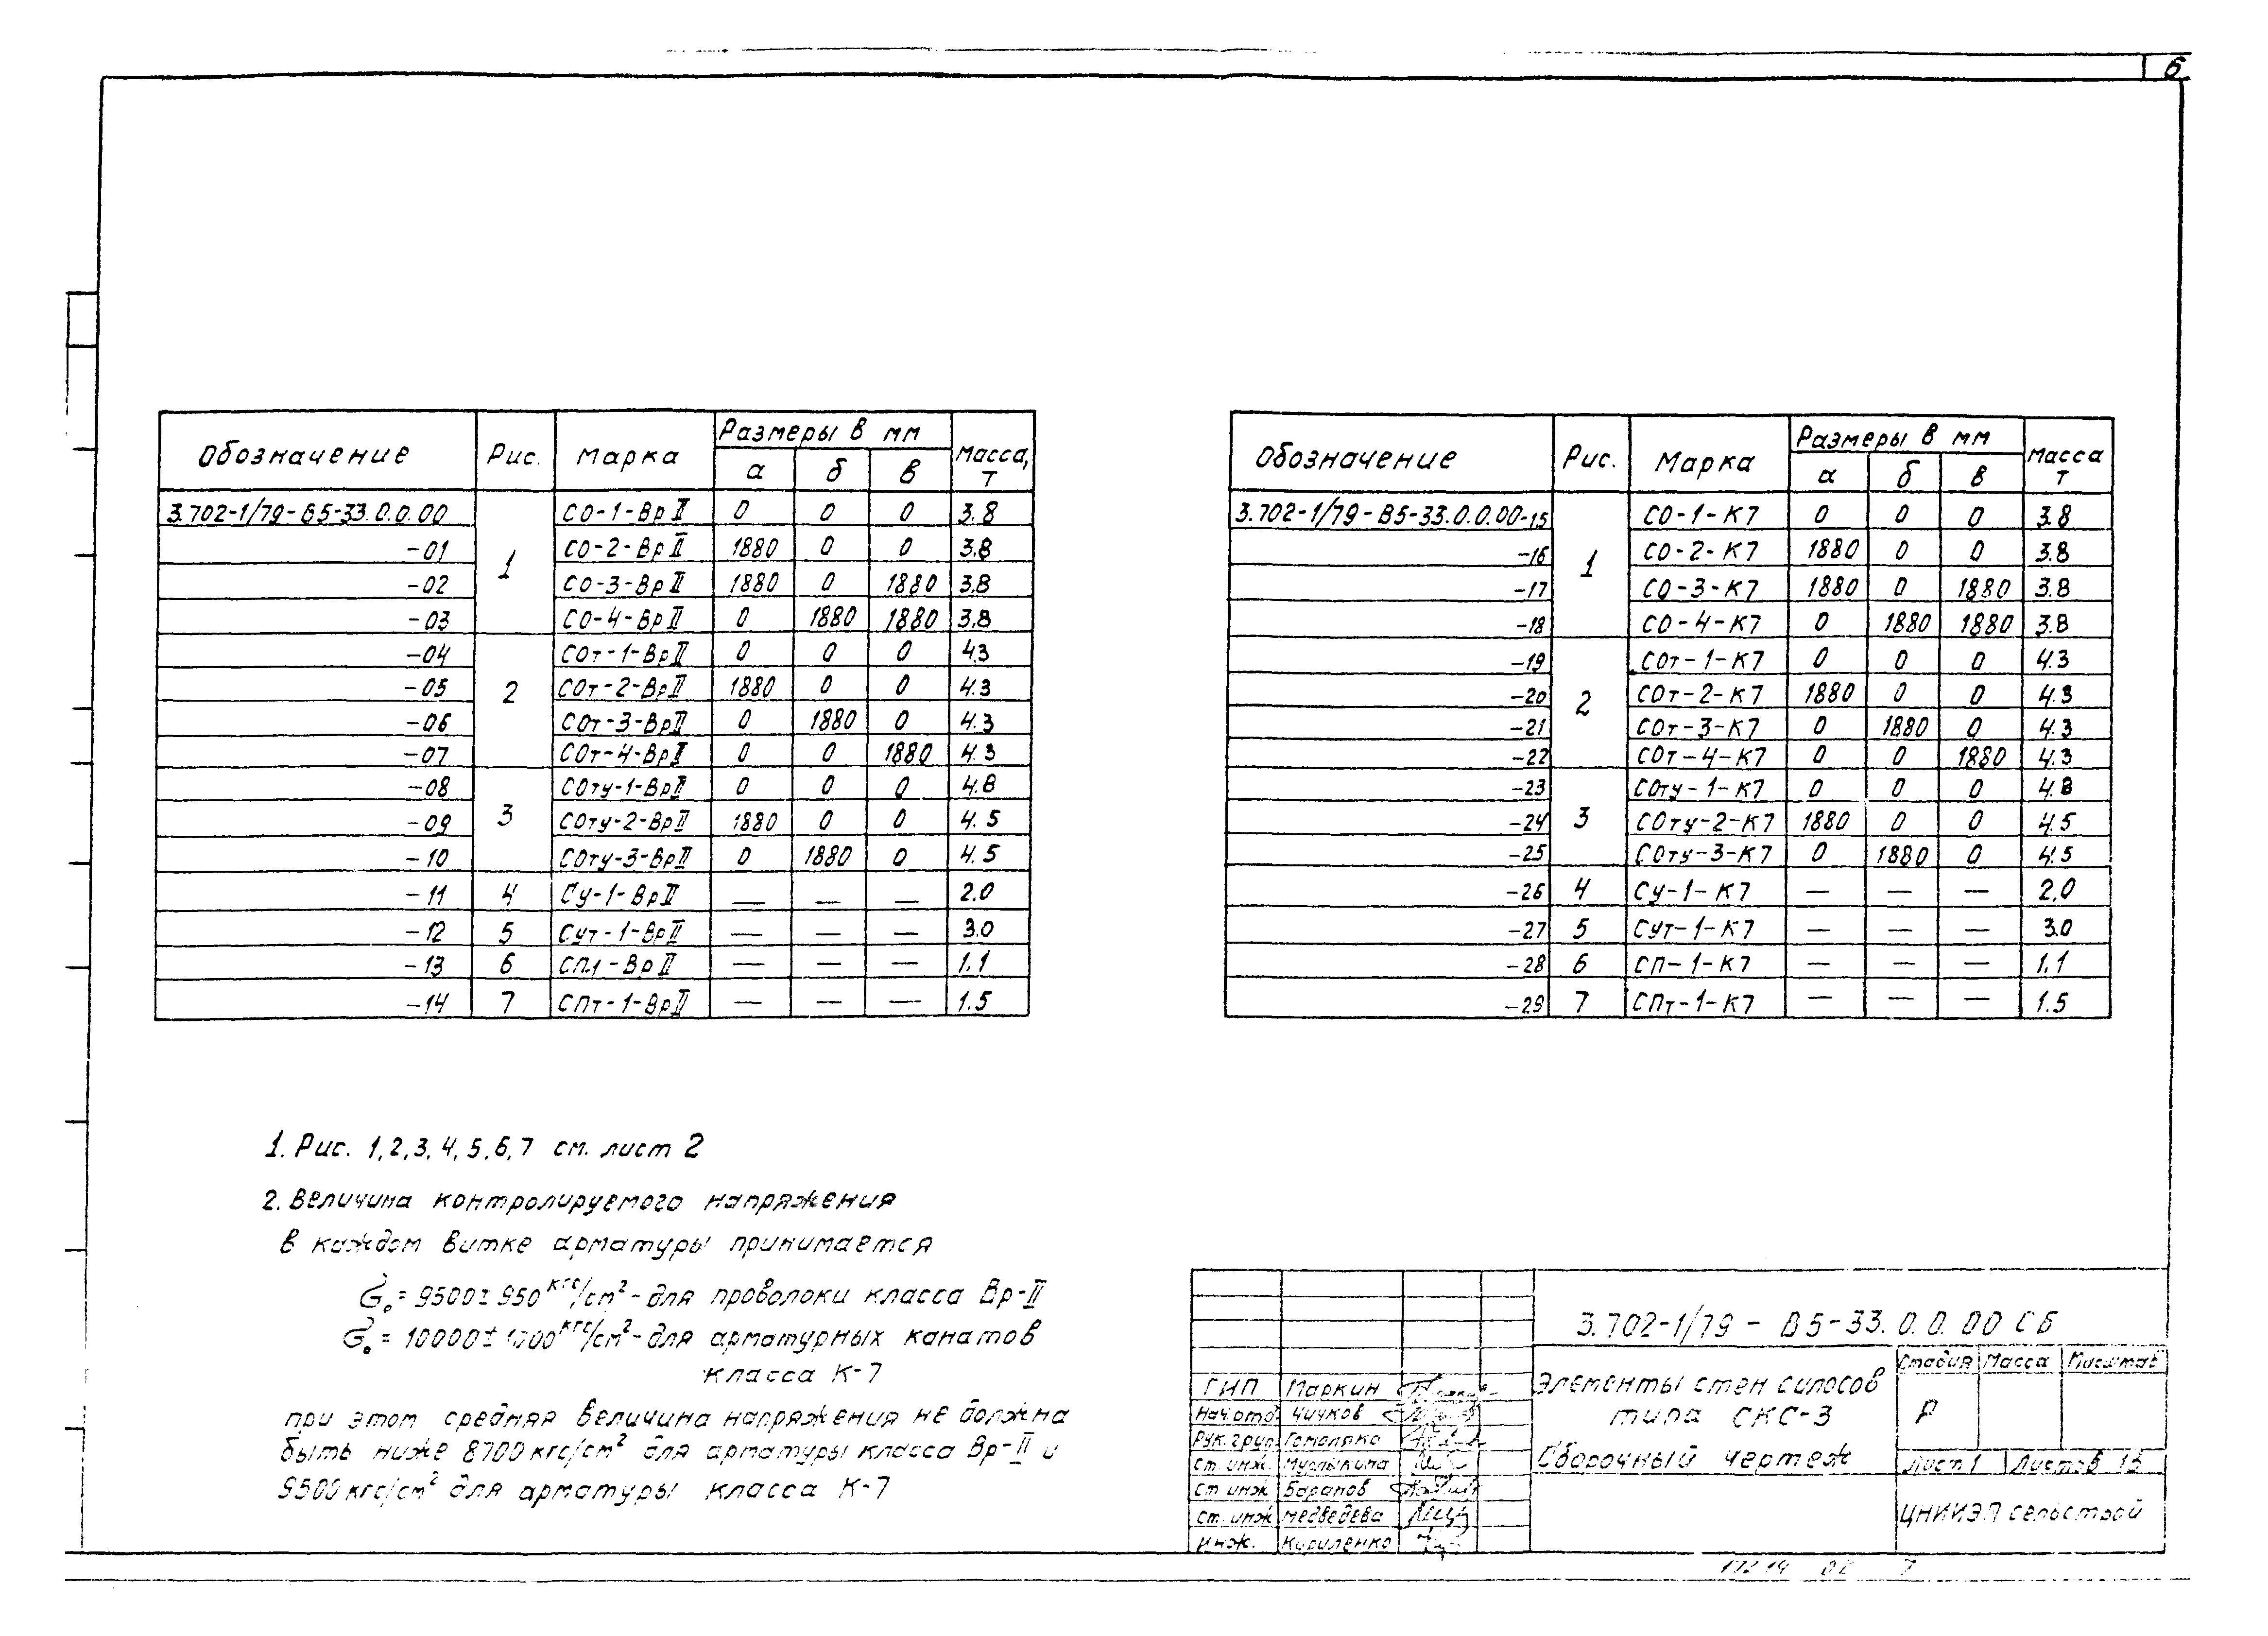 6
Обозначение Рис. Марка Размеры в мм Масса, т
а б в
3.702-1/79-В5-33.0.0.00 1 СО-1-ВрII 0 0 0 3.8
-01 СО-2-ВрII 1880 0 0 3.8
-02 СО-3-ВрII 1880 0 1880 3.8
-03 СО-4-ВрII 0 1880 1880 3.8
-04 2 СОт-1-ВрII 0 0 0 4.3
-05 СОт-2-ВрII 1880 0 0 4.3
-06 СОт-3-ВрII 0 1880 0 4.3
-07 СОт-4-ВрII 0 0 1880 4.3
-08 3 СОту-1-ВрII 0 0 0 4.8
-09 СОту-2-ВрII 1880 0 0 4.5
-10 СОту-3-ВрII 0 1880 0 4.5
-11 4 Су-1-ВрII — — — 2.0
-12 5 Сут-1-ВрII — — — 3.0
-13 6 СП1-ВрII — — — 1.1
-14 7 СПт-1-ВрII — — — 1.5
Обозначение Рис. Марка Размеры в мм Масса т
а б в
3.702-1/79-В5-33.0.0.00-15 1 СО-1-К7 0 0 0 3.8
-16 СО-2-К7 1880 0 0 3.8
-17 СО-3-К7 1880 0 1880 3.8
-18 СО-4-К7 0 1880 1880 3.8
-19 2 СОт-1-К7 0 0 0 4.3
-20 СОт-2-К7 1880 0 0 4.3
-21 СОт-3-К7 0 1880 0 4.3
-22 СОт-4-К7 0 0 1880 4.3
-23 3 СОту-1-К7 0 0 0 4.8
-24 СОту-2-К7 1880 0 0 4.5
-25 СОту-3-К7 0 1880 0 4.5
-26 4 Су-1-К7 — — — 2.0
-27 5 Сут-1-К7 — — — 3.0
-28 6 СП-1-К7 — — — 1.1
-29 7 СПт-1-К7 — — — 1.5
1. Рис. 1,2,3,4,5,6,7 см. лист 2
2. Величина контролируемого напряжения
в каждом витке арматуры принимается
σ₀ = 9500 ± 950 кгс/см² - для проволоки класса Вр-II
σ₀ = 10000 ± 1000 кгс/см² - для арматурных канатов
класса К-7
при этом средняя величина напряжения не должна
быть ниже 8700 кгс/см² для арматуры класса Вр-II и
9500 кгс/см² для арматуры класса К-7
3.702-1/79 - В5-33.0.0.00 СБ
Элементы стен силосов
типа СКС-3
Сборочный чертеж
Стадия Масса Масштаб
Р
Лист 1 Листов 13
ЦНИИЭПсельстрой
ГИП Маркин
Нач.отд. Чичков
Рук.груп. Гомоляко
Ст. инж.
Ст инж Баранов
Ст. инж Медведева
Инж. Кириленко
7